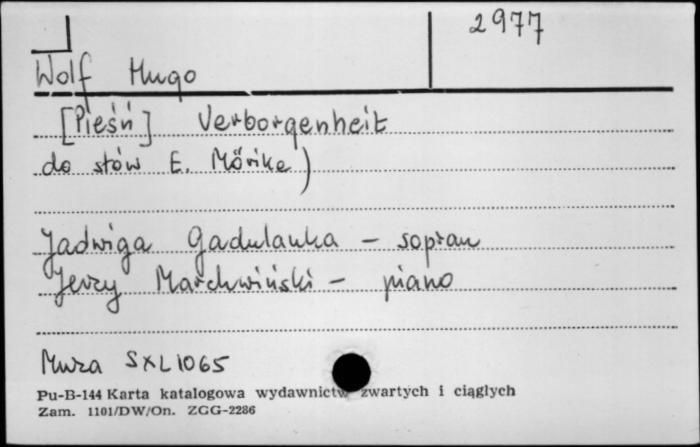 2977
Wolf Hugo
[Pieśń] Verborgenheit
do słów E. Mörike)
Jadwiga Gadulanka - sopran
Jerzy Marchwiński - piano
Muza SXL 1065
Pu-B-144 Karta katalogowa wydawnictw zwartych i ciągłych
Zam. 1101/DW/On. ZGG-2286